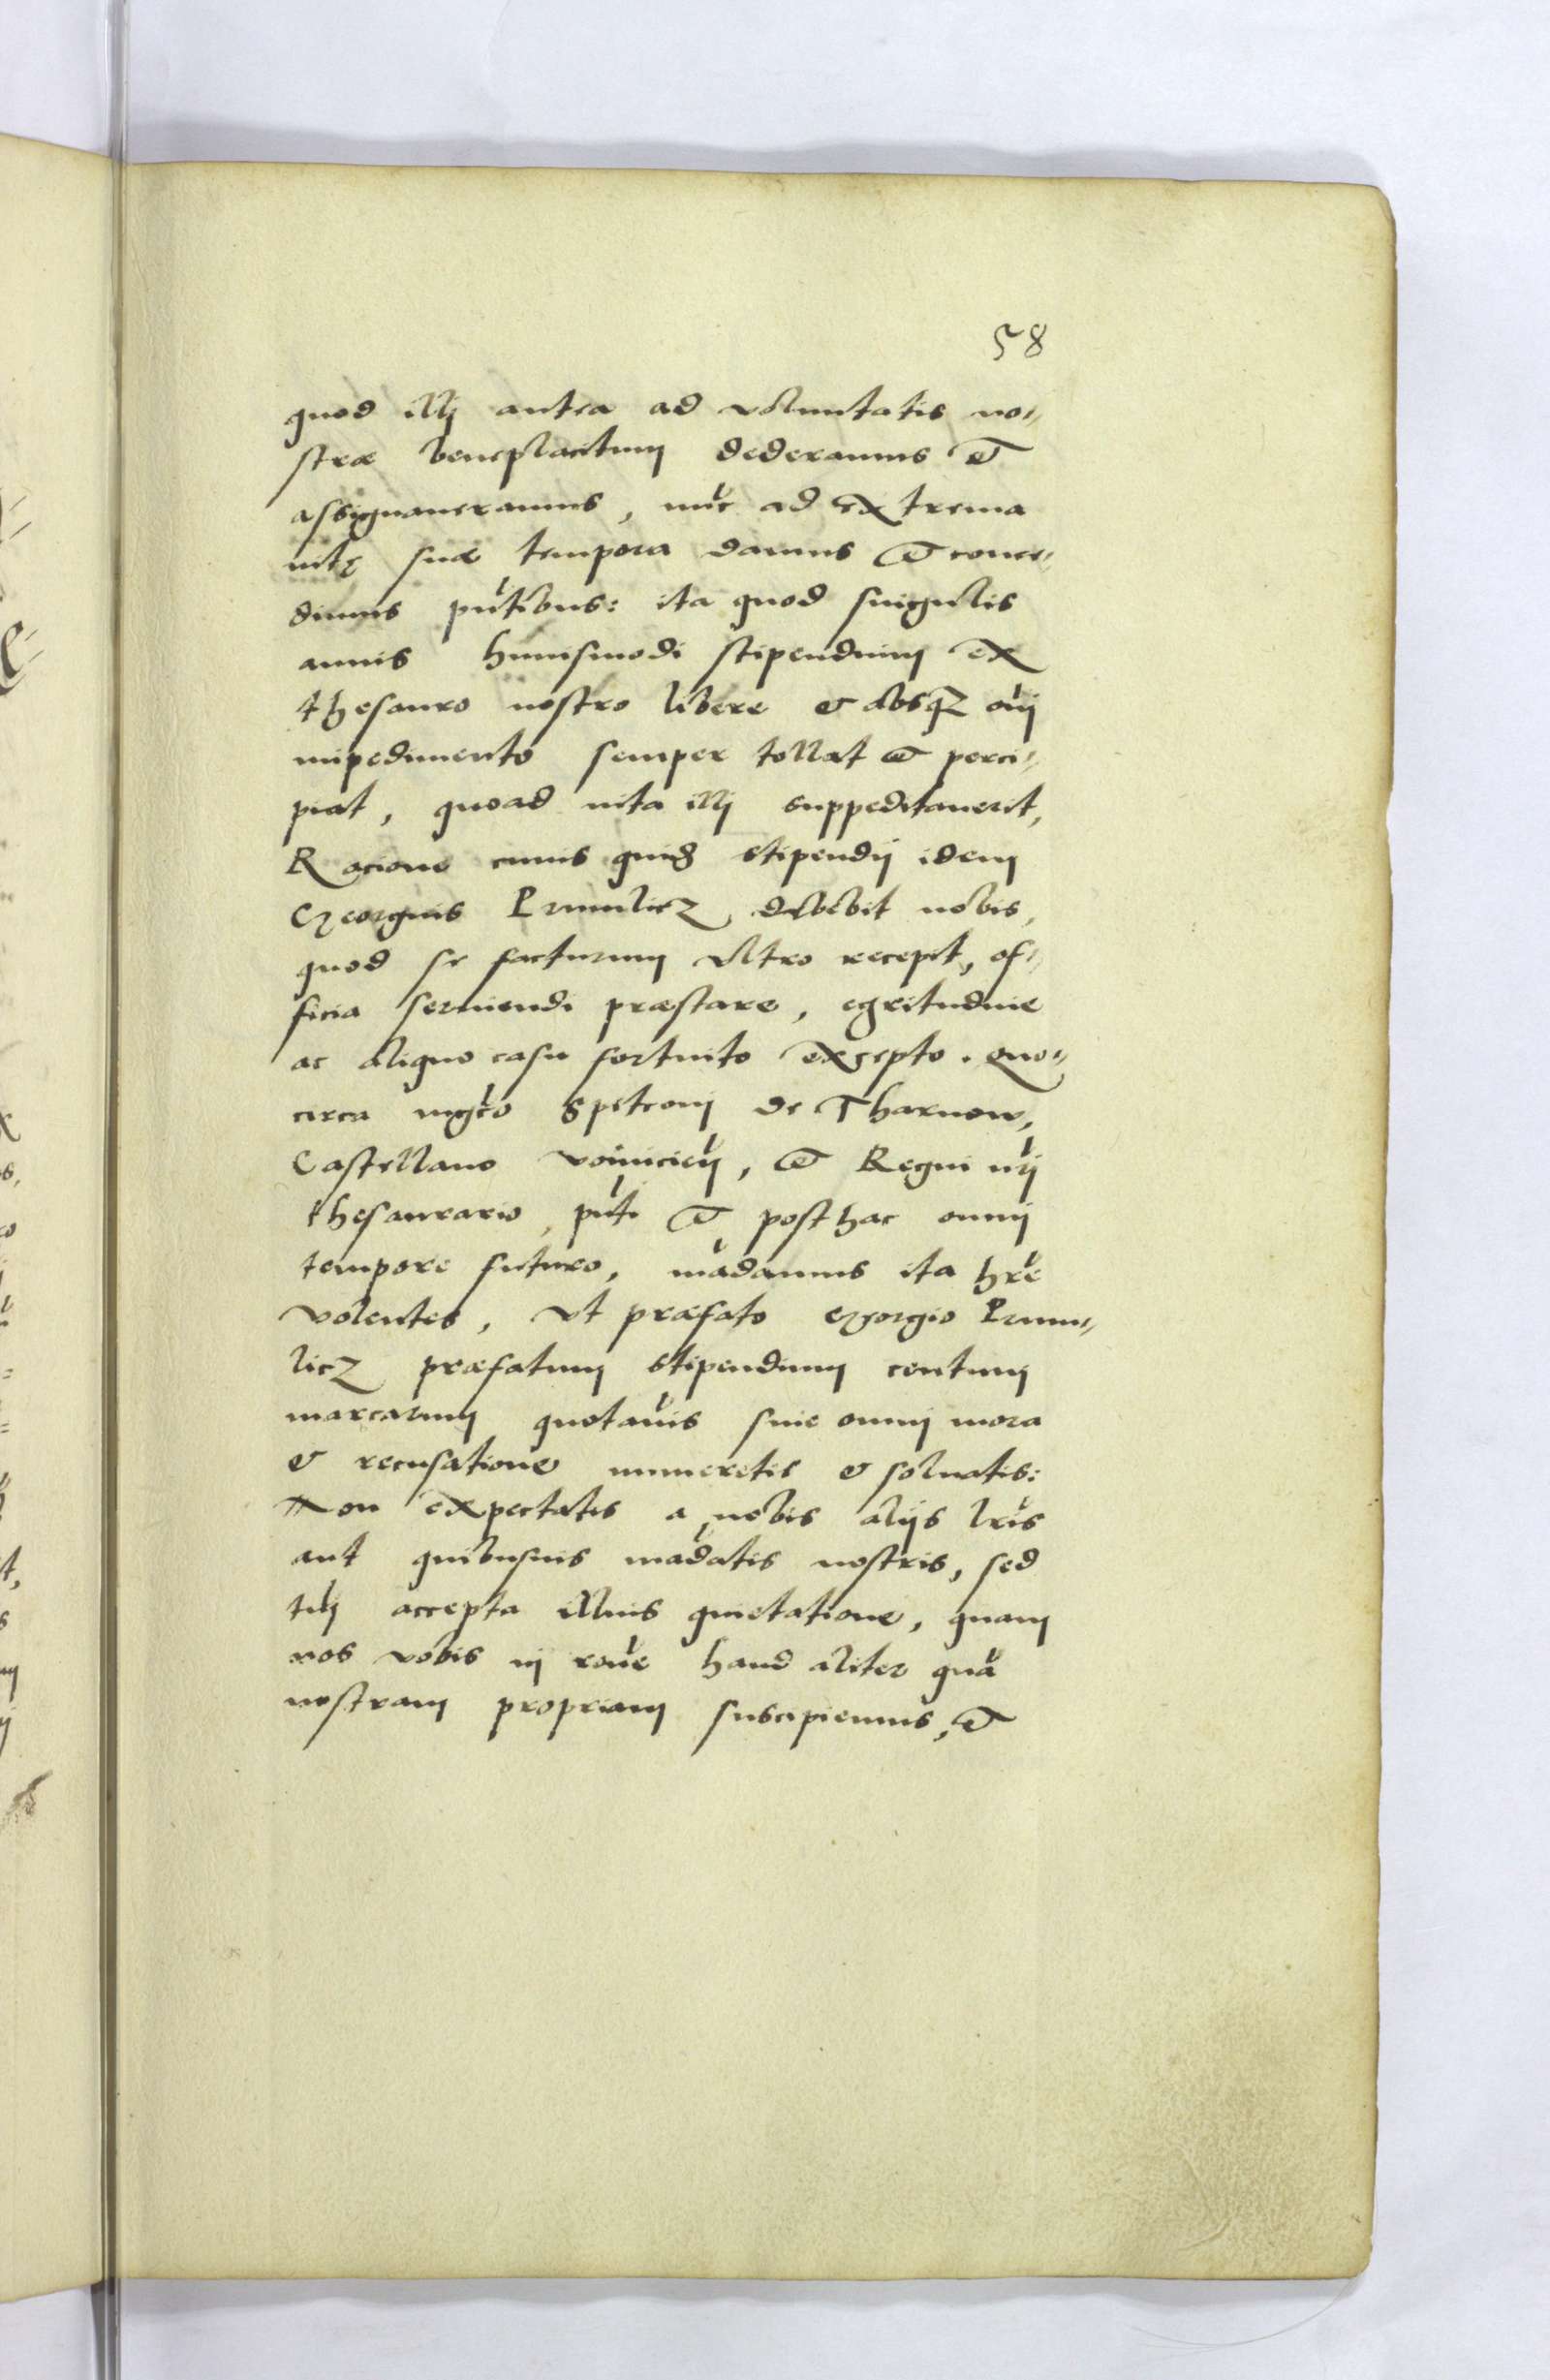 58
quod illj antea ad voluntatis no-
stræ beneplacitum dederamus et
assignaueramus, nūc ad extrema
vitę suæ tempora damus et conce-
dimus pn̄tibus: ita quod singulis
annis huiusmodi stipendium ex
thesauro nostro libere et absqz oī
impedimento semper tollat et perci-
piat, quoad vita illj suppeditauerit,
Racione cuius quidem stipendij idem
Georgius Prumlicz debebit nobis,
quod se facturum vltro recepit, of-
ficia seruiendi præstare, egritudine
ac aliquo casu fortuito excepto. Quo-
circa mgc̄o Spitconi de Tharnow,
Castellano voiniceń, et Regni nr̄j
thesaurario, pn̄ti et post hac omnj
tempore futuro, mādamus ita hr̄e
volentes, vt præfato Georgio Prum-
licz præfatum stipendium centum
marcarum quotañis sine omnj mora
et recusatione numeretis et soluatis:
Non expectatis a nobis alijs lr̄is
aut quibusuis mādatis nostris, sed
tm̄ accepta illius quietatione, quam
nos vobis in rōne haud aliter quā
nostram propriam suscipiemus, et